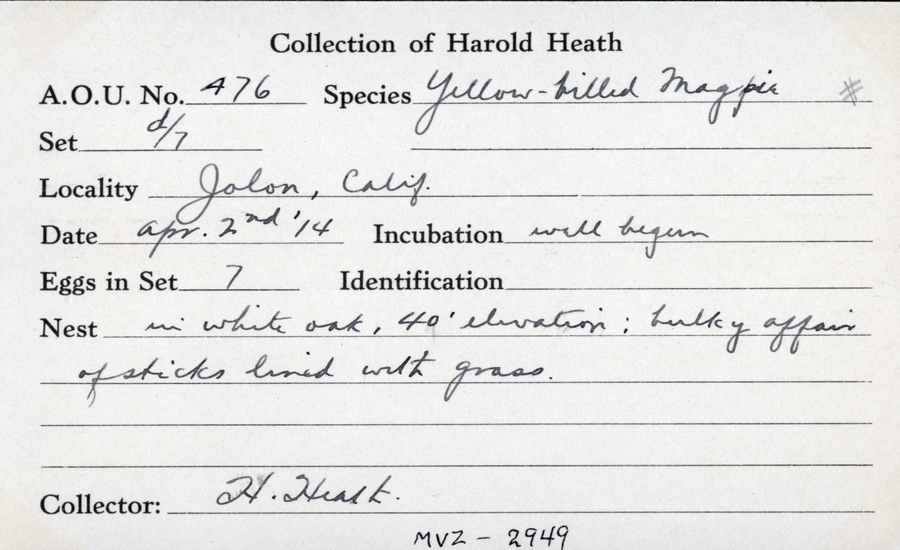 Collection of Harold Heath
A.O.U. No. 476 Species Yellow-billed Magpie #
Set d/7
Locality Jolon, Calif.
Date Apr. 2nd '14 Incubation well begun
Eggs in Set 7 Identification
Nest in white oak, 40' elevation; bulky affair
of sticks lined with grass.
Collector: H. Heath.
MVZ - 2949